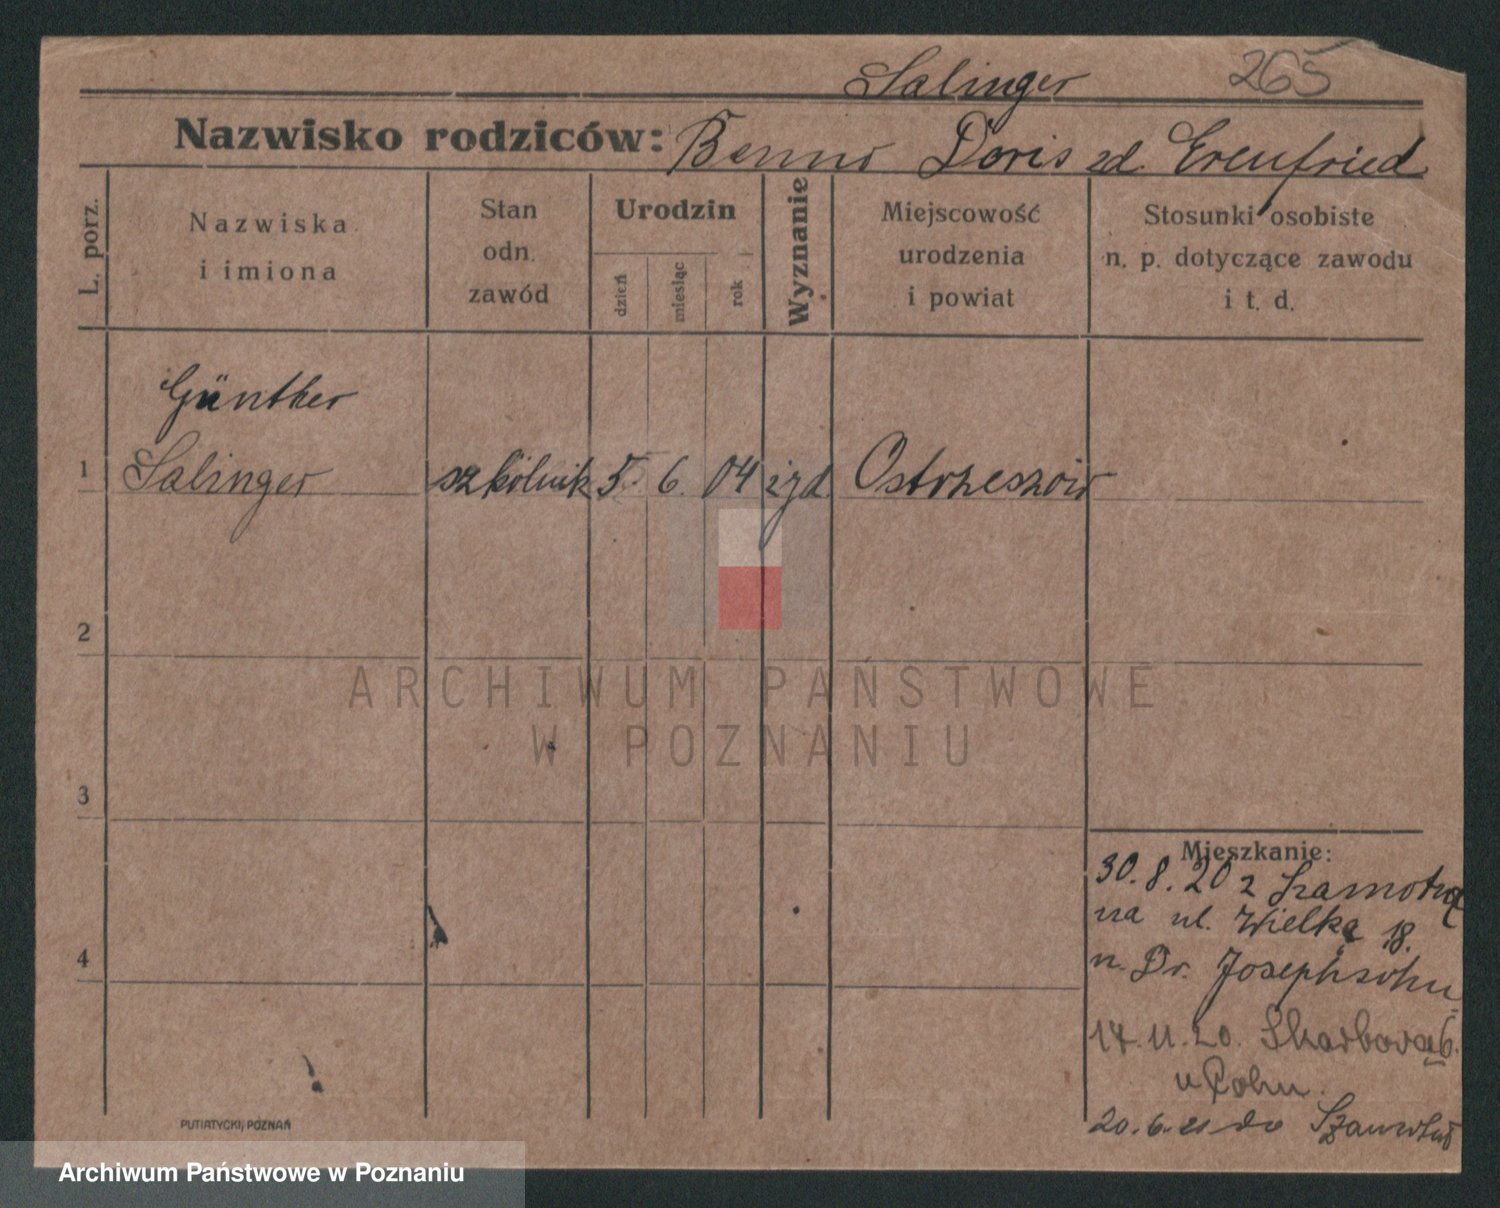 Salinger 265
Nazwisko rodziców: Benno Doris zd. Erenfried
L. porz.
Nazwiska
i imiona
Stan
odn.
zawód
Urodzin
dzień
miesiąc
rok
Wyznanie
Miejscowość
urodzenia
i powiat
Stosunki osobiste
n. p. dotyczące zawodu
i t. d.
Günther
1 Salinger szkolnik 5. 6. 04 żyd. Ostrzeszów
2
ARCHIWUM PAŃSTWOWE
W POZNANIU
3
Mieszkanie:
30.8.20 z Szamotuł
na ul. Wielką 18.
4
u. Dr. Josephsohn
17.11.20. Skarbowa 6.
u
20.6.21 do Szamotuł
PUTIATYCKI, POZNAŃ
Archiwum Państwowe w Poznaniu